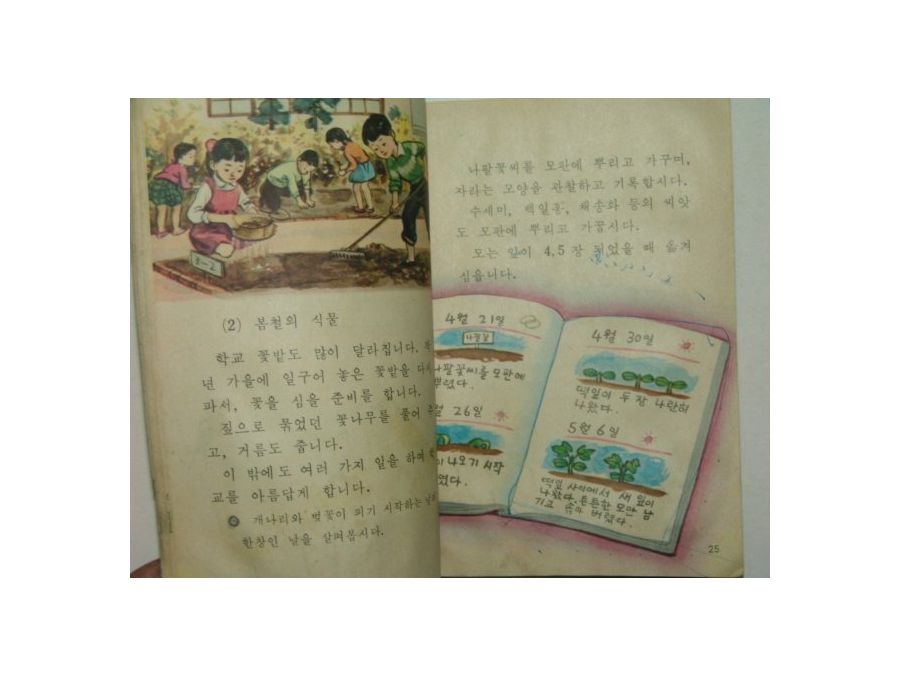 3-2
(2) 봄철의 식물
학교 꽃밭도 많이 달라집니다.
년 가을에 일구어 놓은 꽃밭을 다시
파서, 꽃을 심을 준비를 합니다.
짚으로 묶었던 꽃나무를 풀어
고, 거름도 줍니다.
이 밖에도 여러 가지 일을 하여
교를 아름답게 합니다.
개나리와 벚꽃이 피기 시작하는
한창인 날을 살펴봅시다.
나팔꽃씨를 모판에 뿌리고 가꾸며,
자라는 모양을 관찰하고 기록합시다.
수세미, 백일홍, 채송화 등의 씨앗
도 모판에 뿌리고 가꿉시다.
모는 잎이 4,5장 되었을 때 옮겨
심읍니다.
4월 21일
나팔꽃
나팔꽃씨를 모판에
뿌렸다.
월 26일
이 나오기 시작
였다.
4월 30일
떡잎이 두 장 나란히
나왔다.
5월 6일
떡잎 사이에서 새 잎이
나왔다. 튼튼한 모만 남
기고 솎아 버렸다.
25